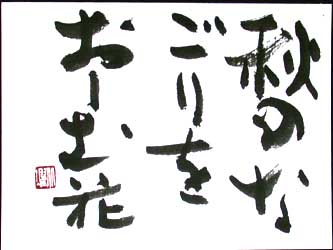 秋のな
ごりを
おしむ花